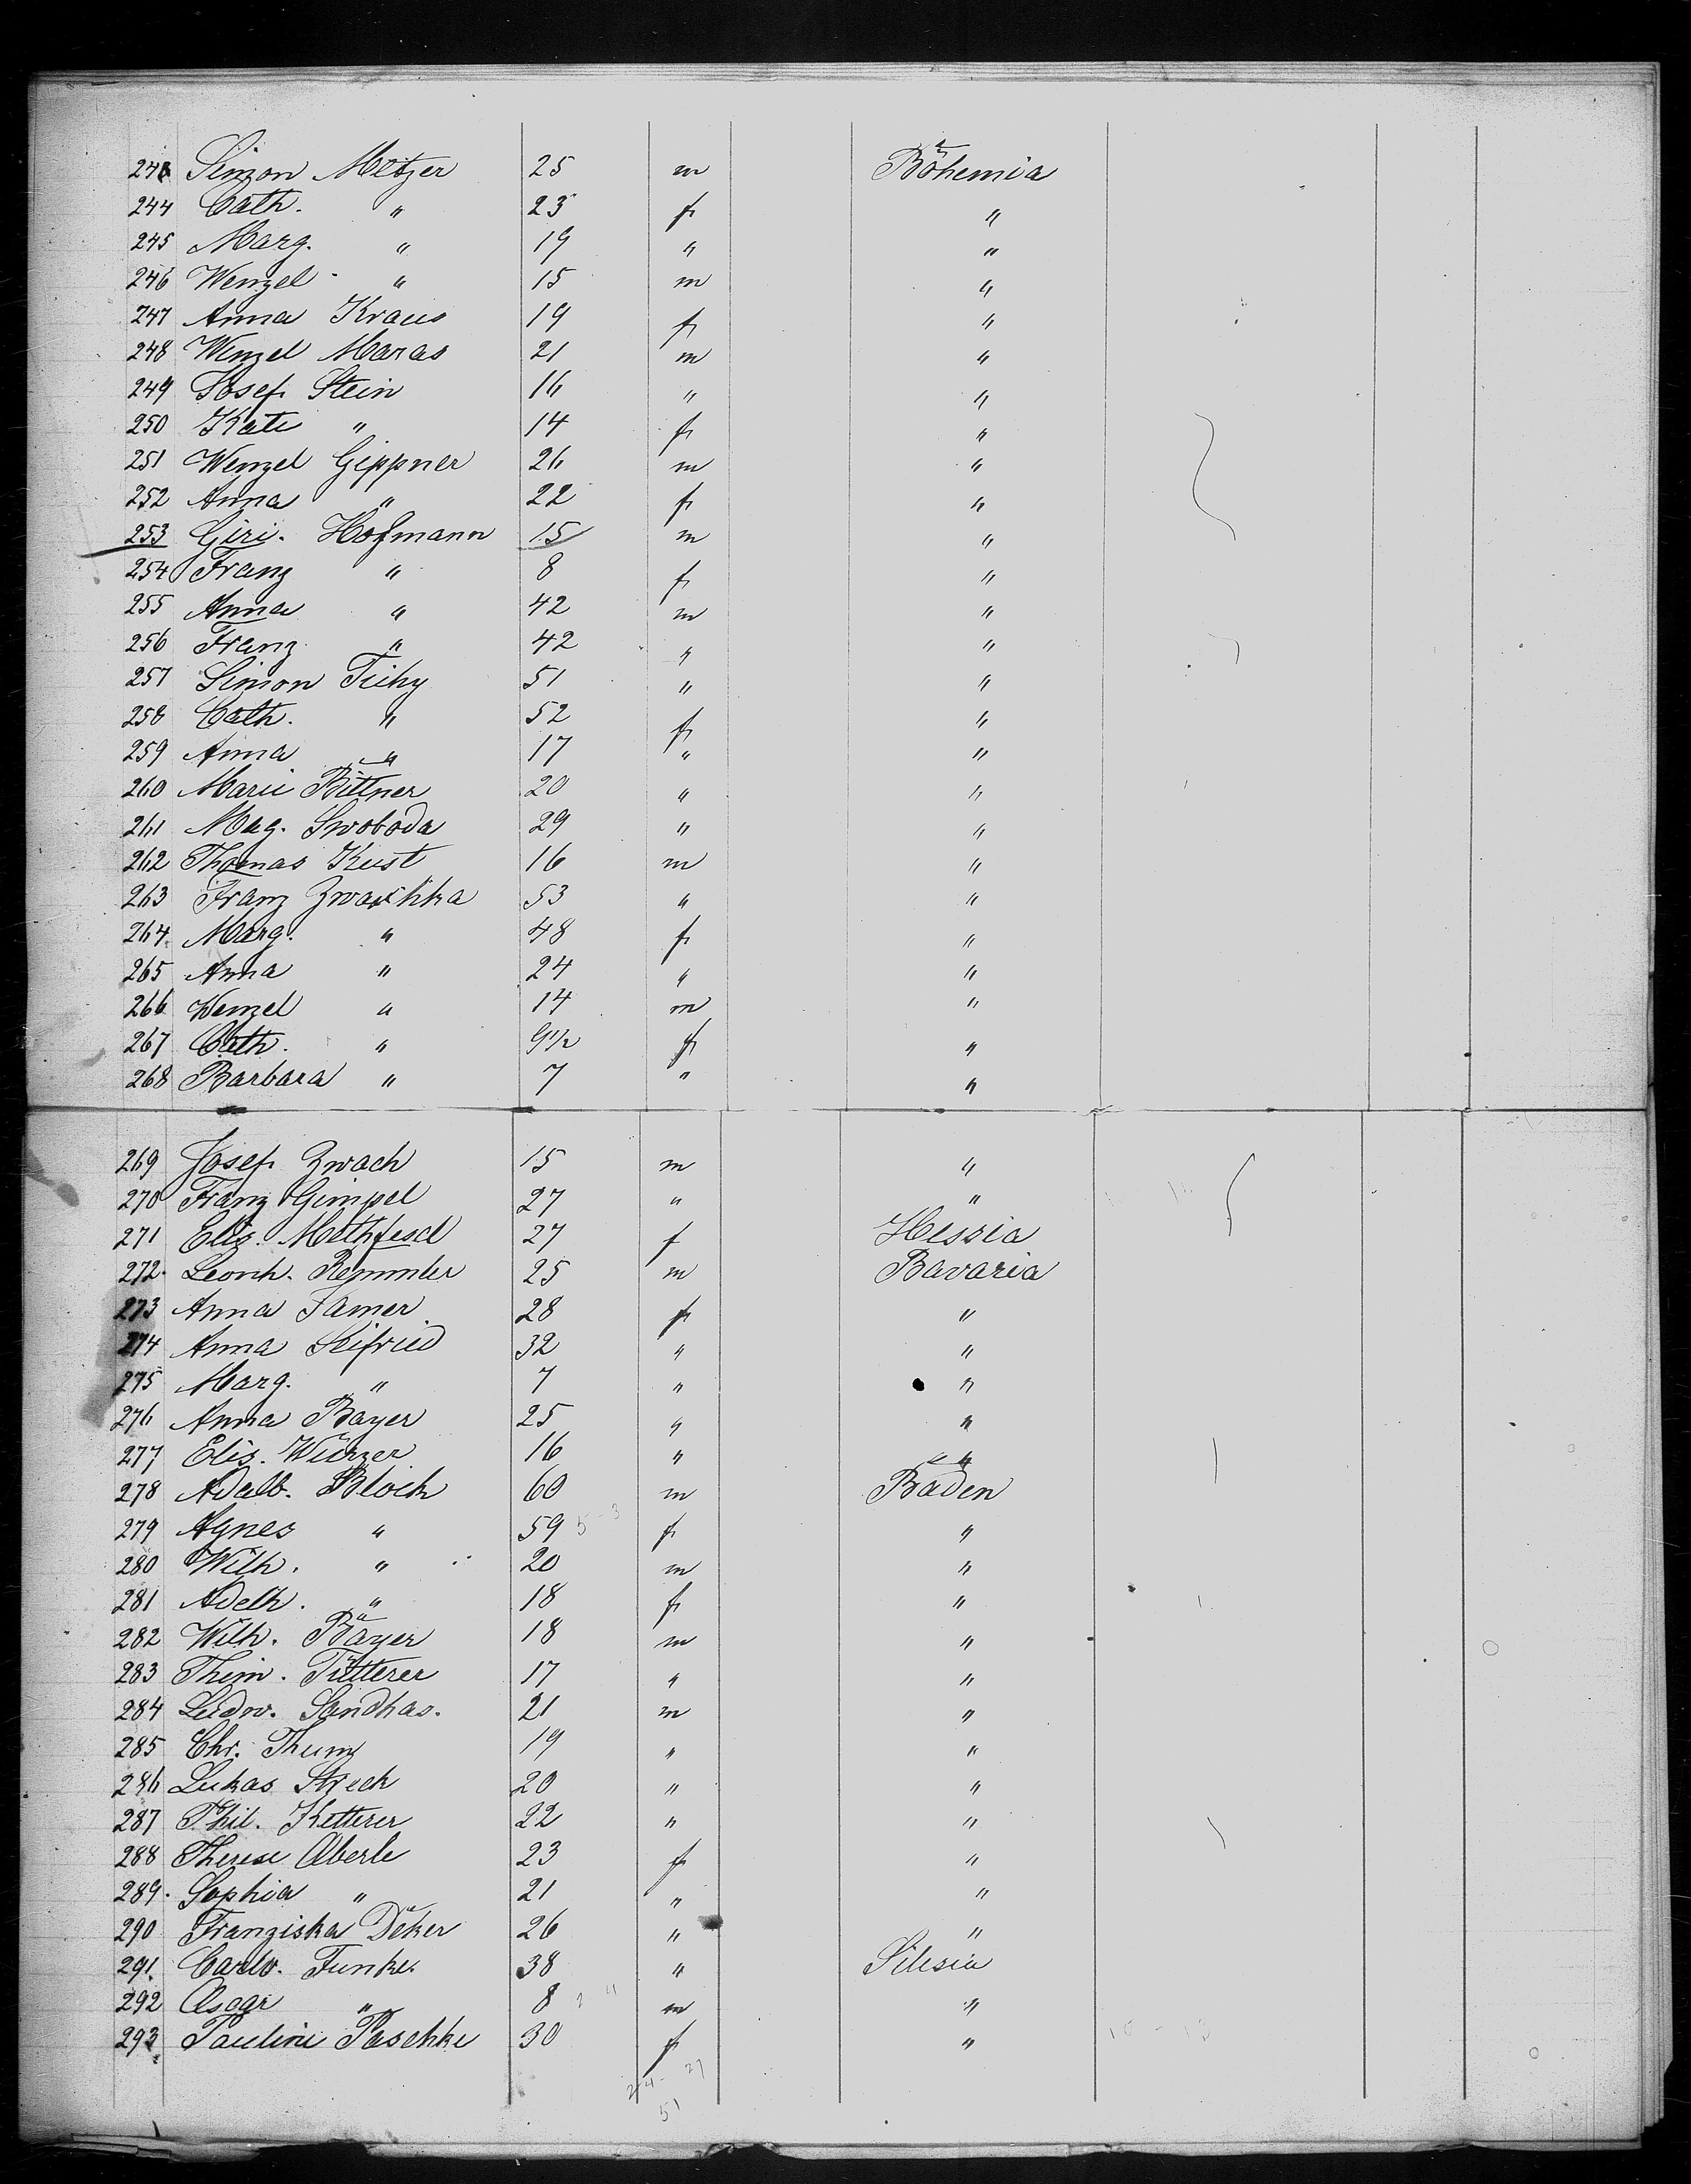 243 Simon Metzer 25 m Böhemia
244 Cath. " 23 f "
245 Marg. " 19 " "
246 Wenzel " 15 m "
247 Anna Kraus 19 f "
248 Wenzel Maras 21 m "
249 Josef Stein 16 " "
250 Kati " 14 f "
251 Wenzel Gippner 26 m "
252 Anna " 22 f "
253 Giri. Hofmann 15 m "
254 Franz " 8 f "
255 Anna " 42 m "
256 Franz " 42 " "
257 Simon Tichy 51 " "
258 Cath. " 52 f "
259 Anna " 17 " "
260 Marie Bittner 20 " "
261 Mag. Swoboda 29 " "
262 Thomas Kust 16 m "
263 Franz 53 " "
264 Marg. " 48 f "
265 Anna " 24 " "
266 Wenzel " 14 m "
267 Cath. " 9 1/2 f "
268 Barbara " 7 " "
269 Josef Zwach 15 m "
270 Franz Gimpel 27 " "
271 Elis. Methfesel 27 f Hessia
272. Leonh. Remmler 25 m Bavaria
273 Anna Famer 28 f "
274 Anna Seifried 32 " "
275 Marg. " 7 " "
276 Anna Bayer 25 " "
277 Elis. Würzer 16 " "
278 Adalb. Block 60 m Baden
279 Agnes " 59 f "
280 Wilh. " 20 m "
281 Adelh. " 18 f "
282 Wilh. Bäyer 18 m "
283 Thim. Tütterer 17 " "
284 Ludw. Sandhas. 21 m "
285 Chr. Thum 19 " "
286 Lukas Streck 20 " "
287 Phil. Ketterer 22 " "
288 Therese Aberle 23 f "
289. Sophia " 21 " "
290 Franziska Deker 26 " "
291. Funke. 38 " Silesia
292 Oscar " 8 m "
293 Pauline Paschke 30 f "
24 - 27
51